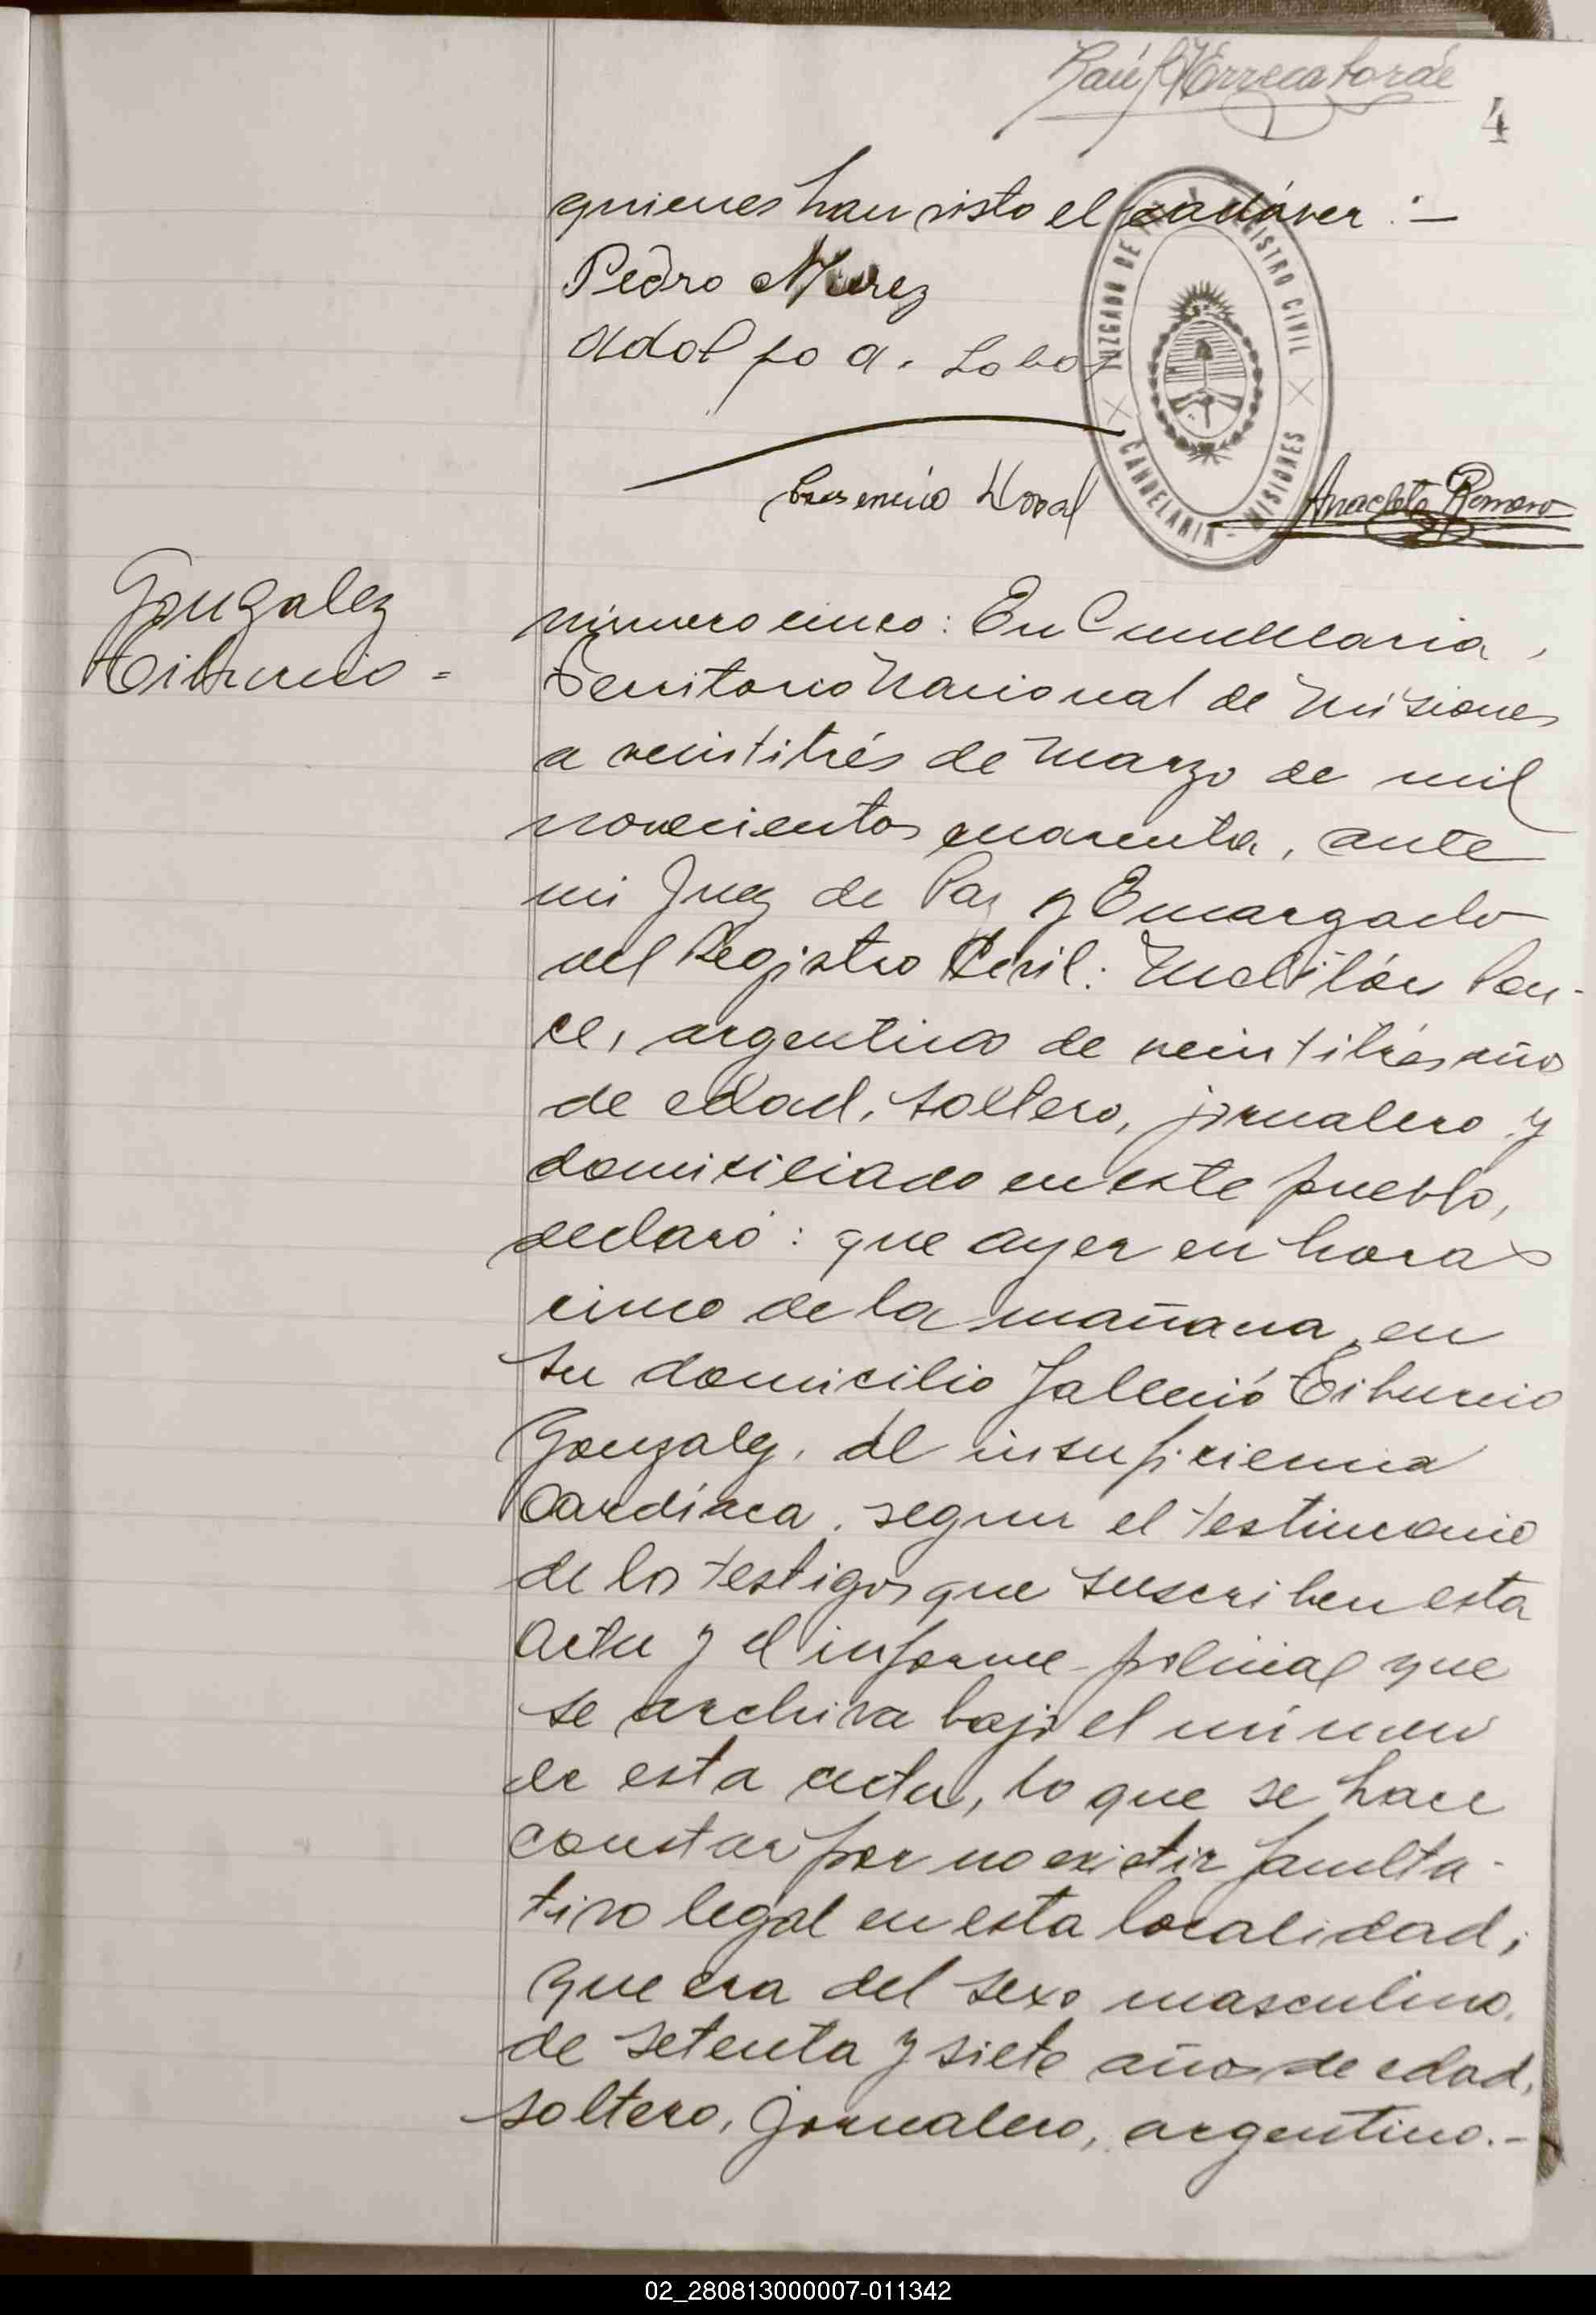 Raúl Errecaborde
4
quienes han visto el cadáver:—
Pedro
Adolfo A. Lobo
JUZGADO DE PAZ REGISTRO CIVIL
CANDELARIA - MISIONES
Anacleto Romero
Gonzalez
Tiburcio =
número cinco: En Candelaria,
Territorio Nacional de Misiones
a veintitrés de Marzo de mil
novecientos cuarenta, ante
mi Juez de Paz y Encargado
del Registro Civil: Pon-
ce, argentino de veintitrés años
de edad, soltero, jornalero y
domiciliado en este pueblo,
declaró: que ayer en horas
cinco de la mañana, en
su domicilio falleció Tiburcio
Gonzalez, de insuficiencia
Cardíaca, segun el testimonio
de los testigos que suscriben esta
Acta y el informe policial que
se archiva bajo el número
de esta acta, lo que se hace
constar por no existir faculta-
tivo legal en esta localidad;
que era del sexo masculino,
de setenta y siete años de edad,
soltero, jornalero, argentino.-
02_280813000007-011342